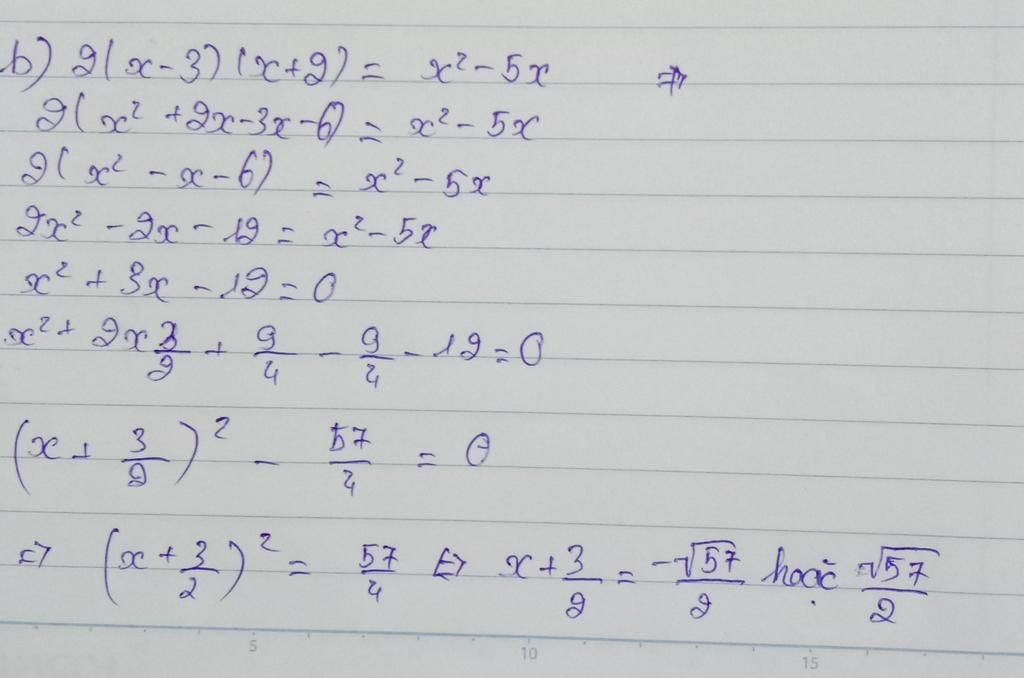 b) 2(x-3)(x+2) = x² - 5x ⇒
2(x² + 2x - 3x - 6) = x² - 5x
2(x² - x - 6) = x² - 5x
2x² - 2x - 12 = x² - 5x
x² + 3x - 12 = 0
x² + 2x 3/2 + 9/4 - 9/4 - 12 = 0
(x + 3/2)² - 57/4 = 0
⇔ (x + 3/2)² = 57/4 ⇔ x + 3/2 = -√57/2 hoặc √57/2
5 10 15